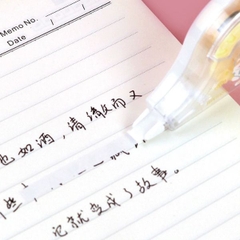 Memo No.
Date / /
也如酒，清澈而又
些
它就变成了故事。